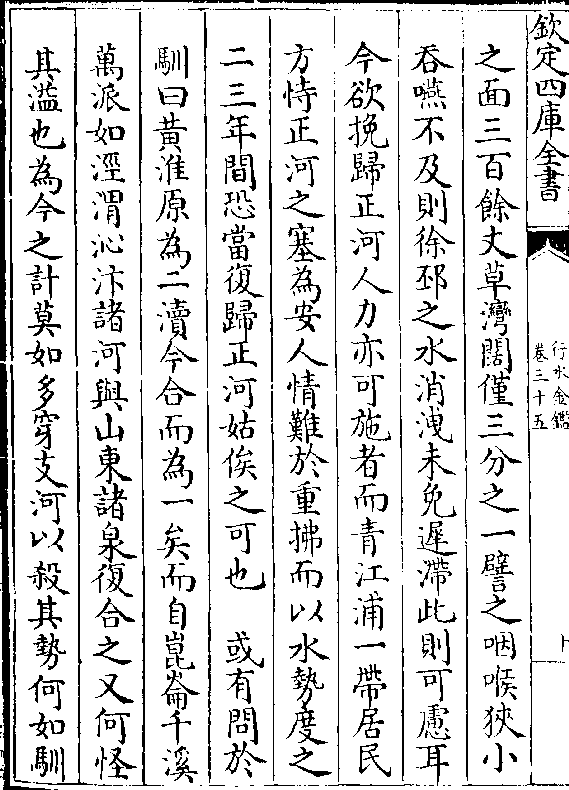 欽定四庫全書
行水金鑑
卷三十五
之面三百餘丈草灣闊僅三分之一譬之咽喉狹小
吞嚥不及則徐邳之水消洩未免遲滯此則可慮耳
今欲挽歸正河人力亦可施者而青江浦一帶居民
方恃正河之塞為安人情難於重拂而以水勢度之
二三年間恐當復歸正河姑俟之可也　或有問於
馴曰黄淮原為二瀆今合而為一矣而自崑崙千溪
萬派如涇渭沁汴諸河與山東諸泉復合之又何怪
其溢也為今之計莫如多穿支河以殺其勢何如馴